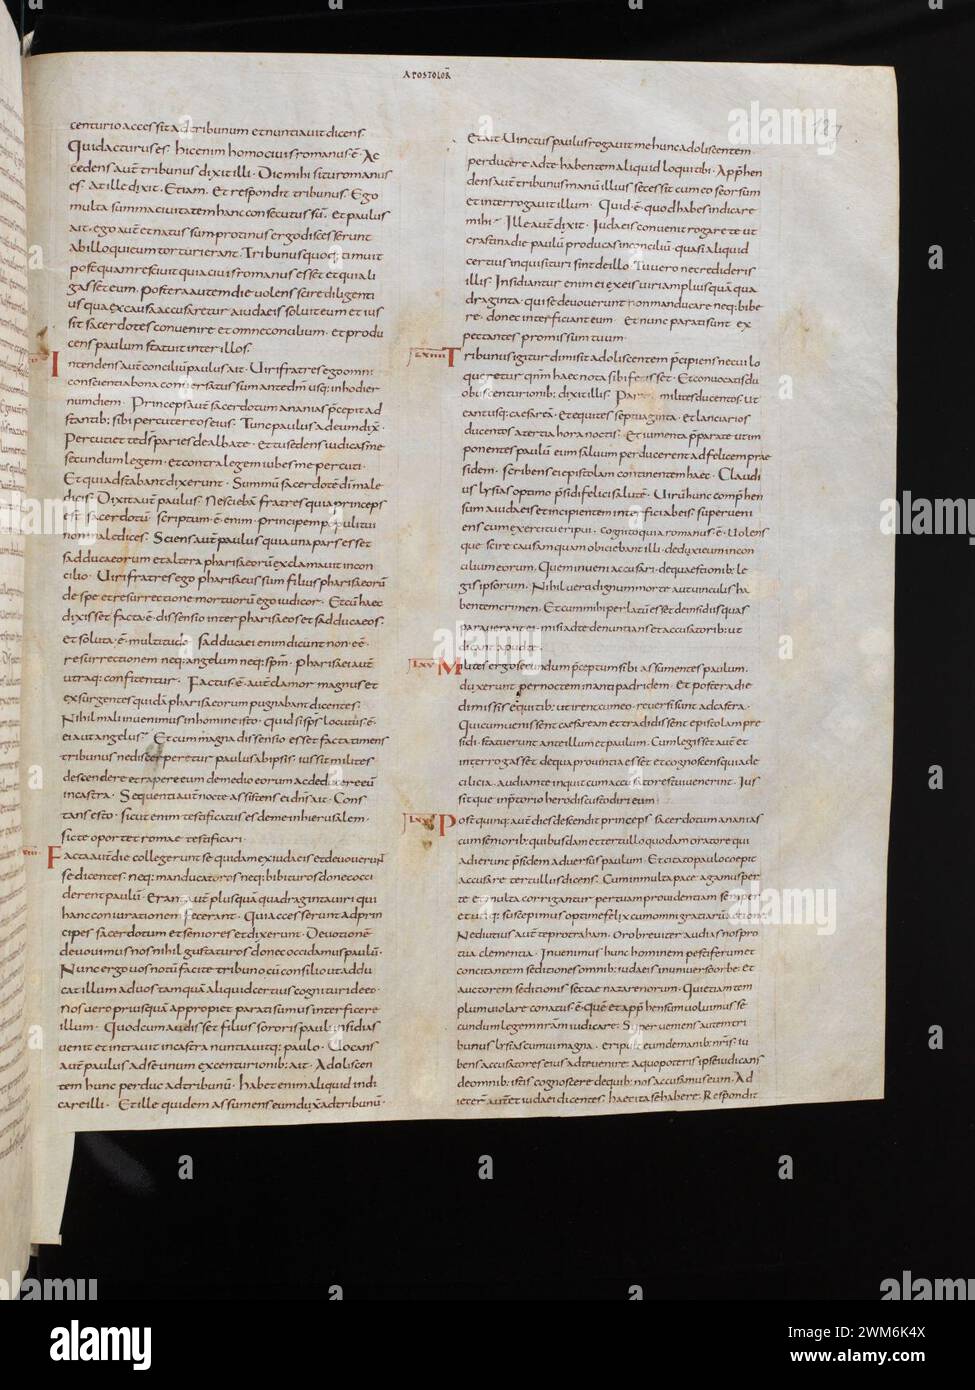 APOSTOLOR̄
187
centurio accessit ad tribunum et nuntiavit dicens.
Quid acturus es. hic enim homo civis romanus ē. Ac
cedens autē tribunus dixit illi. Dic mihi si tu romanus
es. At ille dixit. Etiam. Et respondit tribunus. Ego
multa summa civitatem hanc consecutus sū. Et paulus
ait. ego autē et natus sum protinus ergo discesserunt
ab illo qui eum torturi erant. Tribunus quoq; timuit
postquam rescivit quia civis romanus esset et quia li
gasset eum. Postera autem die volens scire diligenti
us qua ex causa accusaretur a iudaeis solvit eum et ius
sit sacerdotes convenire et omne concilium. et produ
cens paulum statuit inter illos.
Intendens autē conciliū paulus ait. Viri fratres ego omni
conscientia bona conversatus sum ante dm̄ usq; in hodier
num diem. Princeps autē sacerdotum ananias p̄cepit ad
stantib; sibi percutere os eius. Tunc paulus ad eum dix̄.
Percutiet te ds̄ paries dealbate. et tu sedens iudicas me
secundum legem. et contra legem iubes me percuti.
Et qui adstabant dixerunt. Summū sacerdotē dī male
dicis. Dixit autē paulus. Nesciebā fratres quia princeps
est sacerdotū. scriptum ē enim. principem populi tui
non maledices. Sciens autē paulus quia una pars esset
sadducaeorum et altera pharisaeorū exclamavit in con
cilio. Viri fratres ego pharisaeus sum filius pharisaeorū
de spe et resurrectione mortuorū ego iudicor. Et cū haec
dixisset facta ē dissensio inter pharisaeos et sadducaeos.
et soluta ē multitudo. sadducaei enim dicunt non ēē
resurrectionem neq; angelum neq; sp̄m. pharisaei autē
utraq; confitentur. Factus ē autē clamor magnus et
exsurgentes quidā pharisaeorum pugnabant dicentes.
Nihil mali invenimus in homine isto. quid si sp̄s locutus ē
ei aut angelus. Et cum magna dissensio esset facta timens
tribunus ne discerperetur paulus ab ipsis iussit milites
descendere et rapere eum de medio eorum ac deducere eū
in castra. Sequenti autē nocte assistens ei dn̄s ait. Cons
tans esto. sicut enim testificatus es de me in hierusalem.
sic te oportet romae testificari.
Facta autē die collegerunt se quidam ex iudaeis et devoverunt
se dicentes. neq; manducaturos neq; bibituros donec occi
derent paulū. Erant autē plus quā quadraginta viri qui
hanc coniurationem fecerant. Qui accesserunt ad prin
cipes sacerdotum et seniores et dixerunt. Devotionē
devovimus nos nihil gustaturos donec occidamus paulū.
Nunc ergo vos notū facite tribuno cū consilio ut addu
cat illum ad vos tamquā aliquid certius cognituri de eo.
nos vero priusquā appropiet parati sumus interficere
illum. Quod cum audisset filius sororis pauli insidias
venit et intravit in castra nuntiavitq; paulo. Vocans
autē paulus ad se unum ex centurionib; ait. Adolescen
tem hunc perduc ad tribunū. habet enim aliquid indi
care illi. Et ille quidem assumens eum dux̄ ad tribunū.
et ait. Vinctus paulus rogavit me hunc adolescentem
perducere ad te habentem aliquid loqui tibi. Appr̄hen
dens autē tribunus manū illius secessit cum eo seorsum
et interrogavit illum. Quid ē quod habes indicare
mihi. Ille autē dixit. Iudaeis convenit rogare te ut
crastina die paulū producas in conciliū. quasi aliquid
certius inquisituri sint de illo. Tu vero ne credideris
illis. Insidiantur enim ei ex eis viri amplius quā qua
draginta. qui se devoverunt non manducare neq; bibe
re. donec interficiant eum. Et nunc parati sunt ex
pectantes promissum tuum.
LXIIII Tribunus igitur dimisit adolescentem p̄cipiens ne cui lo
queretur qnm̄ haec nota sibi fecisset. Et convocatis du
obus centurionib; dixit illis. Parate milites ducentos. ut
eant usq; caesareā. et equites septuaginta. et lancearios
ducentos a tertia hora noctis. Et iumenta p̄parate ut im
ponentes paulū eum salvum perducerent ad felicem prae
sidem. scribens epistolam continentem haec. Claudi
us lysias optimo p̄sidi felici salutē. Virū hunc compr̄hen
sum a iudaeis et incipientem interfici ab eis. superveni
ens cum exercitu eripui. cognito quia romanus ē. Volens
que scire causam quam obiciebant illi. deduxi eum in con
cilium eorum. Quem inveni accusari de quaestionib; le
gis ipsorum. Nihil vero dignum morte aut vinculis ha
bentem crimen. Et cum mihi perlatū esset de insidiis quas
paraverant ei. misi ad te denuntians et accusatorib; ut
dicant apud te.
LXV Milites ergo secundum p̄ceptum sibi assumentes paulum.
duxerunt per noctem in antipatridem. Et postera die
dimissis equitib; ut irent cum eo. reversi sunt ad castra.
Qui cum venissent caesaream et tradidissent epistolam pre
sidi. statuerunt ante illum et paulum. Cum legisset autē et
interrogasset de qua provintia esset et cognoscens quia de
cilicia. audiam te inquit cum accusatores tui venerint. Ius
sitque in p̄torio herodis custodiri eum.
LXVI Post quinq; autē dies descendit princeps sacerdotum ananias
cum seniorib; quibusdam et tertullo quodam oratore qui
adierunt p̄sidem adversus paulum. Et citato paulo coepit
accusare tertullus dicens. Cum in multa pace agamus per
te et multa corrigantur per tuam providentiam semper
et ubiq; suscepimus optime felix cum omni gratiarū actione.
Ne diutius autē te protraham. Oro breviter audias nos pro
tua clementia. Invenimus hunc hominem pestiferum et
concitantem seditiones omnib; iudaeis in universo orbe. et
auctorem seditionis sectae nazarenorum. Qui etiam tem
plum violare conatus ē. Quē et appr̄hensum voluimus se
cundum legem nr̄am iudicare. Superveniens autem tri
bunus lysias cum vi magna. eripuit eum de manib; nr̄is. iu
bens accusatores eius ad te venire. a quo poteris ipse iudicans
de omnib; istis cognoscere de quib; nos accusamus eum. Ad
iecer̄ autē et iudaei dicentes. haec ita se habere. Respondit
alamy
Image ID: 2WM6K4X
www.alamy.com